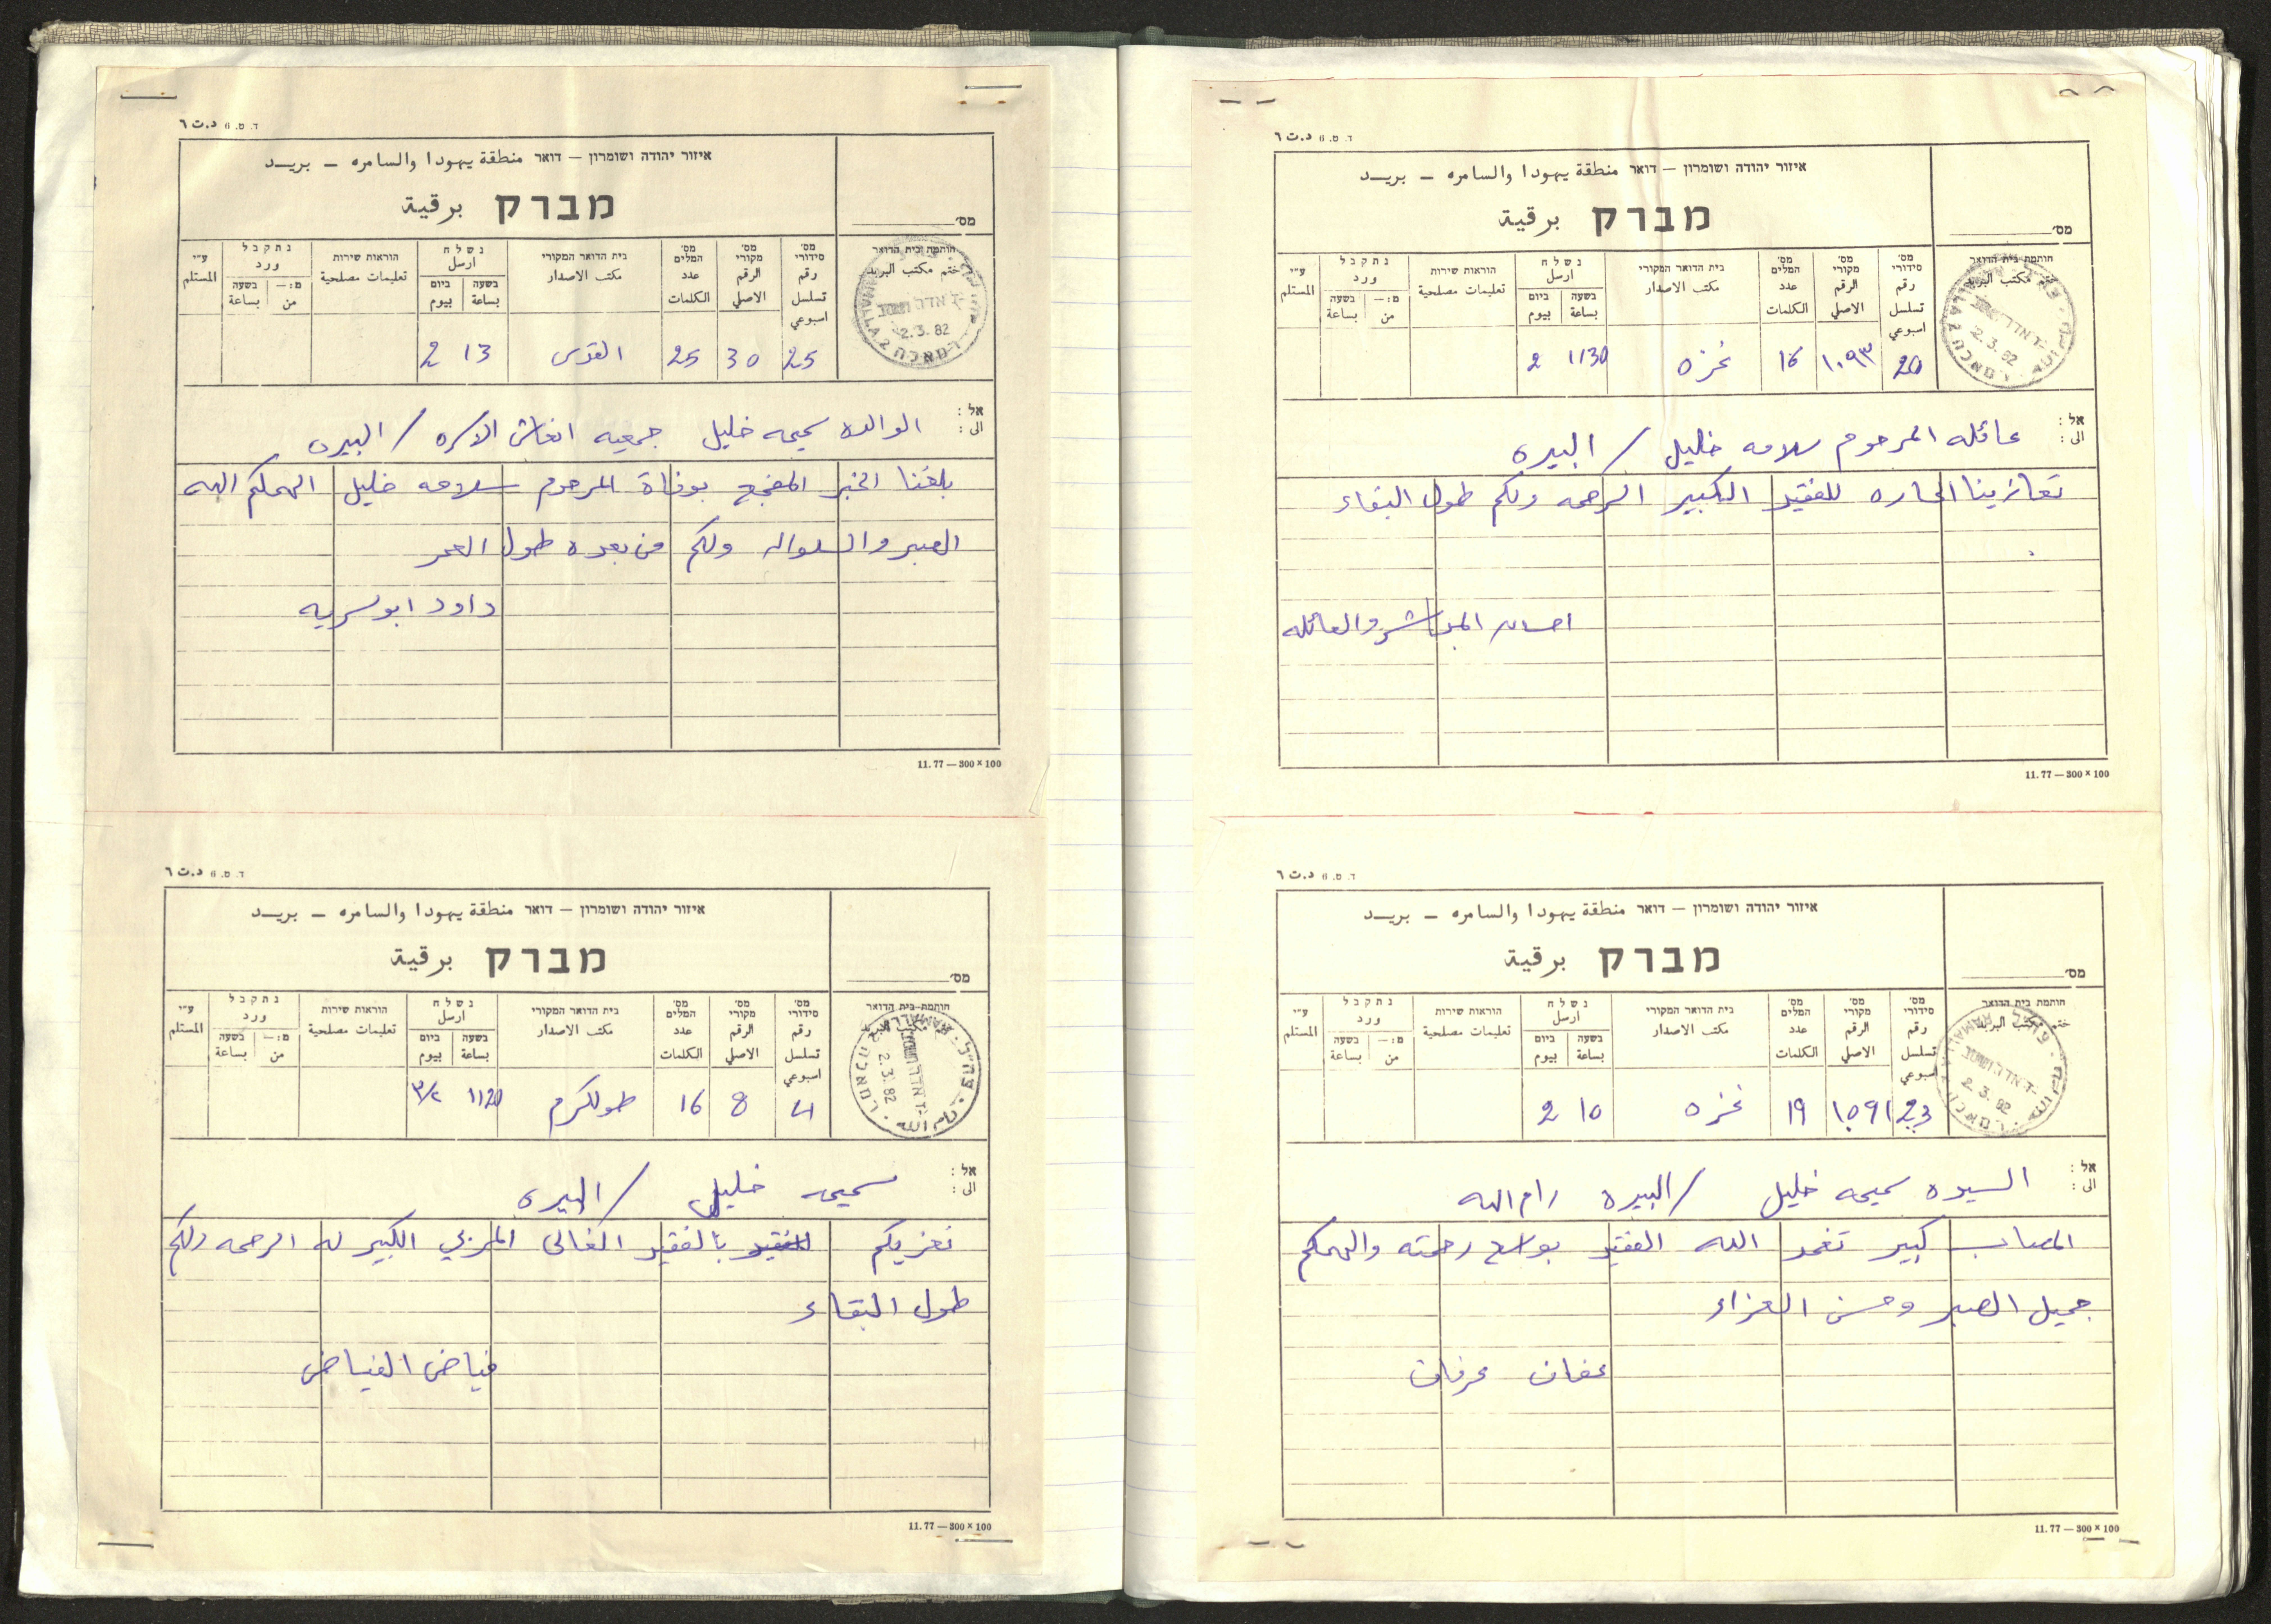 ד. ט. 6 د.ت ٦
איזור יהודה ושומרון – דואר منطقة يهودا والسامره – بريد
מברק برقية
מס'
חותמת בית הדואר
ختم مكتب البريد
RAMALLA 2
2.3.82
רמאללה
מס' סידורי رقم تسلسل اسبوعي
מס' מקורי الرقم الاصلي
מס' המלים عدد الكلمات
בית הדואר המקורי مكتب الاصدار
נשלח ارسل
בשעה بساعة
ביום بيوم
הוראות שירות تعليمات مصلحية
נתקבל ورد
מ:– من
בשעה بساعة
ע"י المستلم
25 30 25 القدس 13 2
אל :
الى :
الوالده سميحه خليل جمعيه انعاش الاسره / البيره
بلغنا الخبر المفجع بوفاة المرحوم سلامه خليل الهمكم الله
الصبر والسلوان ولكم من بعده طول العمر
داود ابو سريه
11.77 — 300 × 100
ד. ט. 6 د.ت ٦
איזור יהודה ושומרון – דואר منطقة يهودا والسامره – بريد
מברק برقية
מס'
חותמת בית הדואר
مكتب البريد
2.3.82
רמאללה
מס' סידורי رقم تسلسل اسبوعي
מס' מקורי الرقم الاصلي
מס' המלים عدد الكلمات
בית הדואר המקורי مكتب الاصدار
נשלח ارسل
בשעה بساعة
ביום بيوم
הוראות שירות تعليمات مصلحية
נתקבל ورد
מ:– من
בשעה بساعة
ע"י المستلم
8 16 طولكرم 1120 ٣/٢
אל :
الى :
سميحه خليل / البيره
نعزيكم بالفقيد الغالى المربي الكبير له الرحمه ولكم
طول البقاء
فياض الفياض
11.77 — 300 × 100
ד. ט. 6 د.ت ٦
איזור יהודה ושומרון – דואר منطقة يهودا والسامره – بريد
מברק برقية
מס'
חותמת בית הדואר
ختم مكتب البريد
2.3.82
רמאללה
מס' סידורי رقم تسلسل اسبوعي
מס' מקורי الرقم الاصلي
מס' המלים عدد الكلمات
בית הדואר המקורי مكتب الاصدار
נשלח ارسل
בשעה بساعة
ביום بيوم
הוראות שירות تعليمات مصلحية
נתקבל ورد
מ:– من
בשעה بساعة
ע"י المستلم
20 ١٠٩٣ 16 غزه 1130 2
אל :
الى :
عائله المرحوم سلامه خليل / البيره
تعازينا الحاره للفقيد الكبير الرحمه ولكم طول البقاء
احسان المباشر والعائله
11.77 — 300 × 100
ד. ט. 6 د.ت ٦
איזור יהודה ושומרון – דואר منطقة يهودا والسامره – بريد
מברק برقية
מס'
חותמת בית הדואר
ختم مكتب البريد
2.3.82
מס' סידורי رقم تسلسل اسبوعي
מס' מקורי الرقم الاصلي
מס' המלים عدد الكلمات
בית הדואר המקורי مكتب الاصدار
נשלח ارسل
בשעה بساعة
ביום بيوم
הוראות שירות تعليمات مصلحية
נתקבל ورد
מ:– من
בשעה بساعة
ע"י المستلم
23 19 غزه 10 2
אל :
الى :
السيده سميحه خليل / البيره رام الله
المصاب كبير تغمد الله الفقيد بواسع رحمته والهمكم
جميل الصبر وحسن العزاء
عفان عرفات
11.77 — 300 × 100